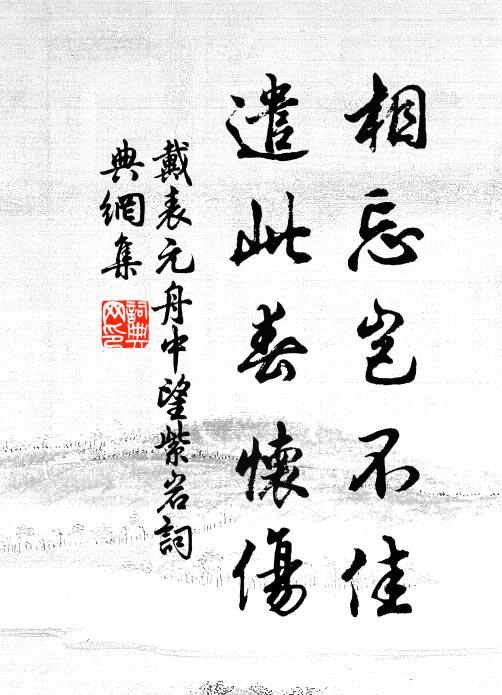 相忘岂不佳
遣此春懷傷
戴表元舟中望紫岩詞
典網集
詞典網印